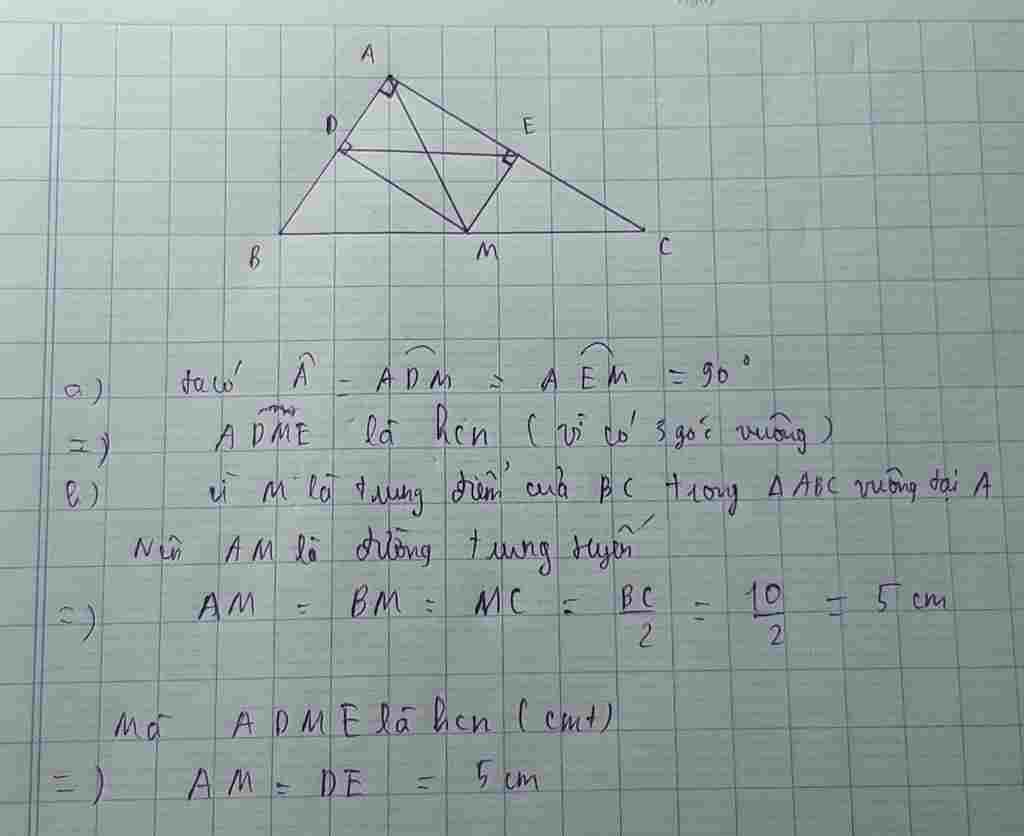 A
D
E
B
M
C
a) ta có Â = ADM = AEM = 90°
=) ADME là hcn (vì có 3 góc vuông)
b) vì M là trung điểm của BC trong Δ ABC vuông tại A
Nên AM là đường trung tuyến
=) AM = BM = MC = BC/2 = 10/2 = 5 cm
Mà ADME là hcn (cmt)
=) AM = DE = 5 cm